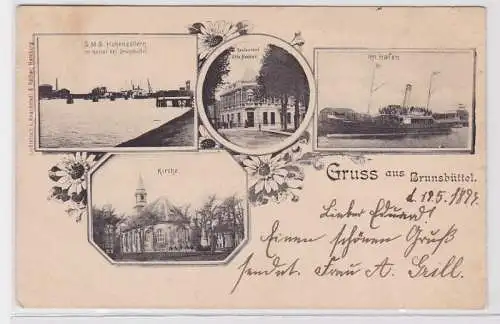 S.M.S. Hohenzollern
im Kanal bei Brunsbüttel.
Restaurant
Im Hafen
Kirche.
Gruss aus Brunsbüttel.
d. 19.5. 1897.
Lieber Eduard!
Einen schönen Gruß
sendet. Frau A. Grill.